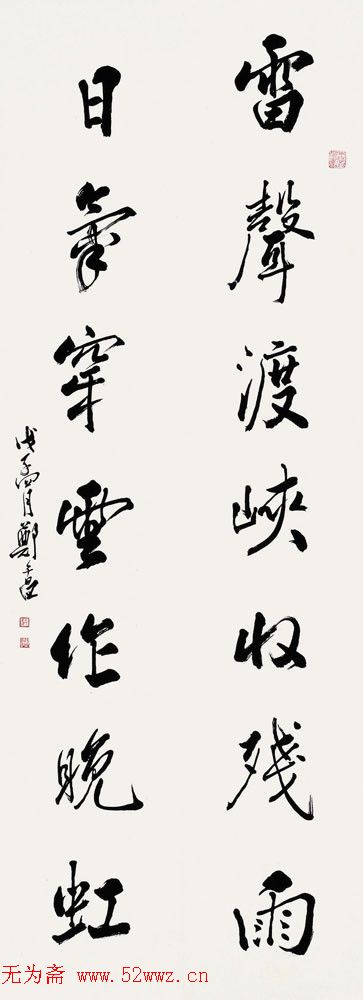 雷聲渡峽收殘雨
日氣穿雲作晚虹
戊子四月鄭
无为斋 www.52wwz.cn